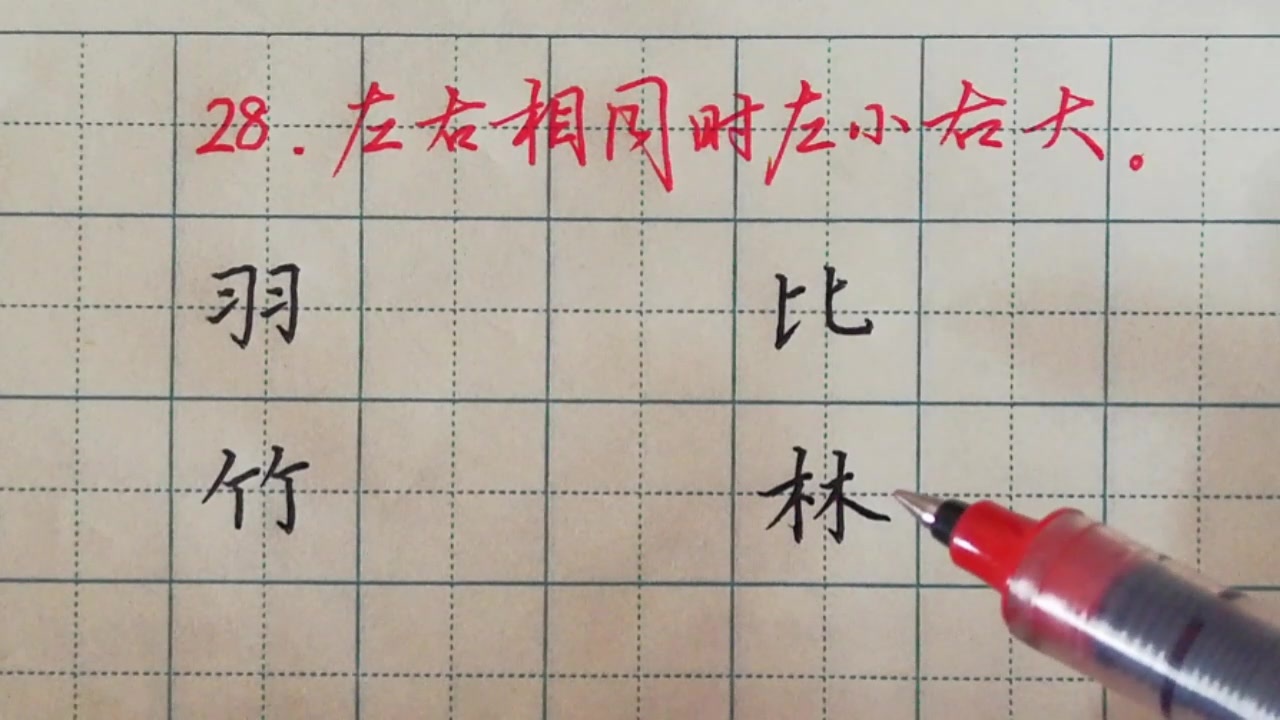 28.左右相同时左小右大。
羽 比
竹 林